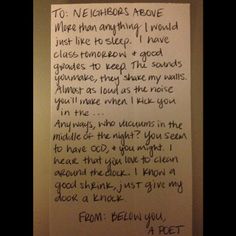 TO: NEIGHBORS ABOVE
More than anything I would
just like to sleep. I have
class tomorrow & good
grades to keep. The sounds
you make, they shake my walls.
Almost as loud as the noise
you'll make when I kick you
in the ...
Anyways, who vacuums in the
middle of the night? You seem
to have OCD, & you might. I
hear that you love to clean
around the clock. I know a
good shrink, just give my
door a knock.
FROM: BELOW YOU,
A POET